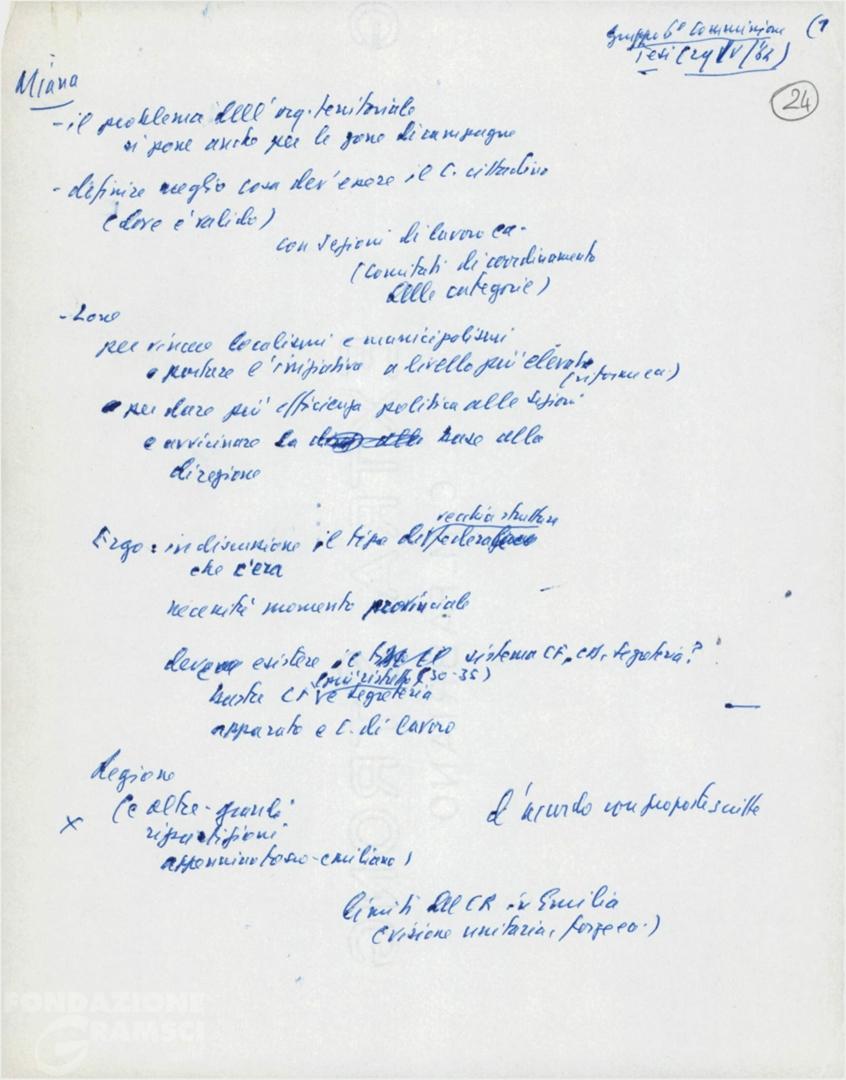 Gruppo 6ª Commissione (1
Tesi (29/V/'62)
24
Miana
- il problema dell'org. territoriale
si pone anche per le zone di campagna
- definire meglio cosa dev'essere il C. cittadino
(dove è valido)
con Sezioni di lavoro ecc.
(comitati di coordinamento
delle categorie)
- Zone
per vincere localismi e municipalismi
e portare l'iniziativa a livello più elevato
(riforme ecc.)
per dare più efficienza politica alle Sezioni
e avvicinare la base alla
direzione
vecchia struttura
Ergo: in discussione il tipo di federazione
che c'era
necessità momento provinciale
deve esistere il sistema CF, CD, Segreteria?
(più ristretto (30-35)
basta CF e Segreteria
apparato e C. di lavoro
Regione
(e altre grandi
x
ripartizioni
appennino tosco-emiliano)
d'accordo con proposte scritte
limiti del CR in Emilia
(visione unitaria, forze ecc.)
FONDAZIONE
GRAMSCI